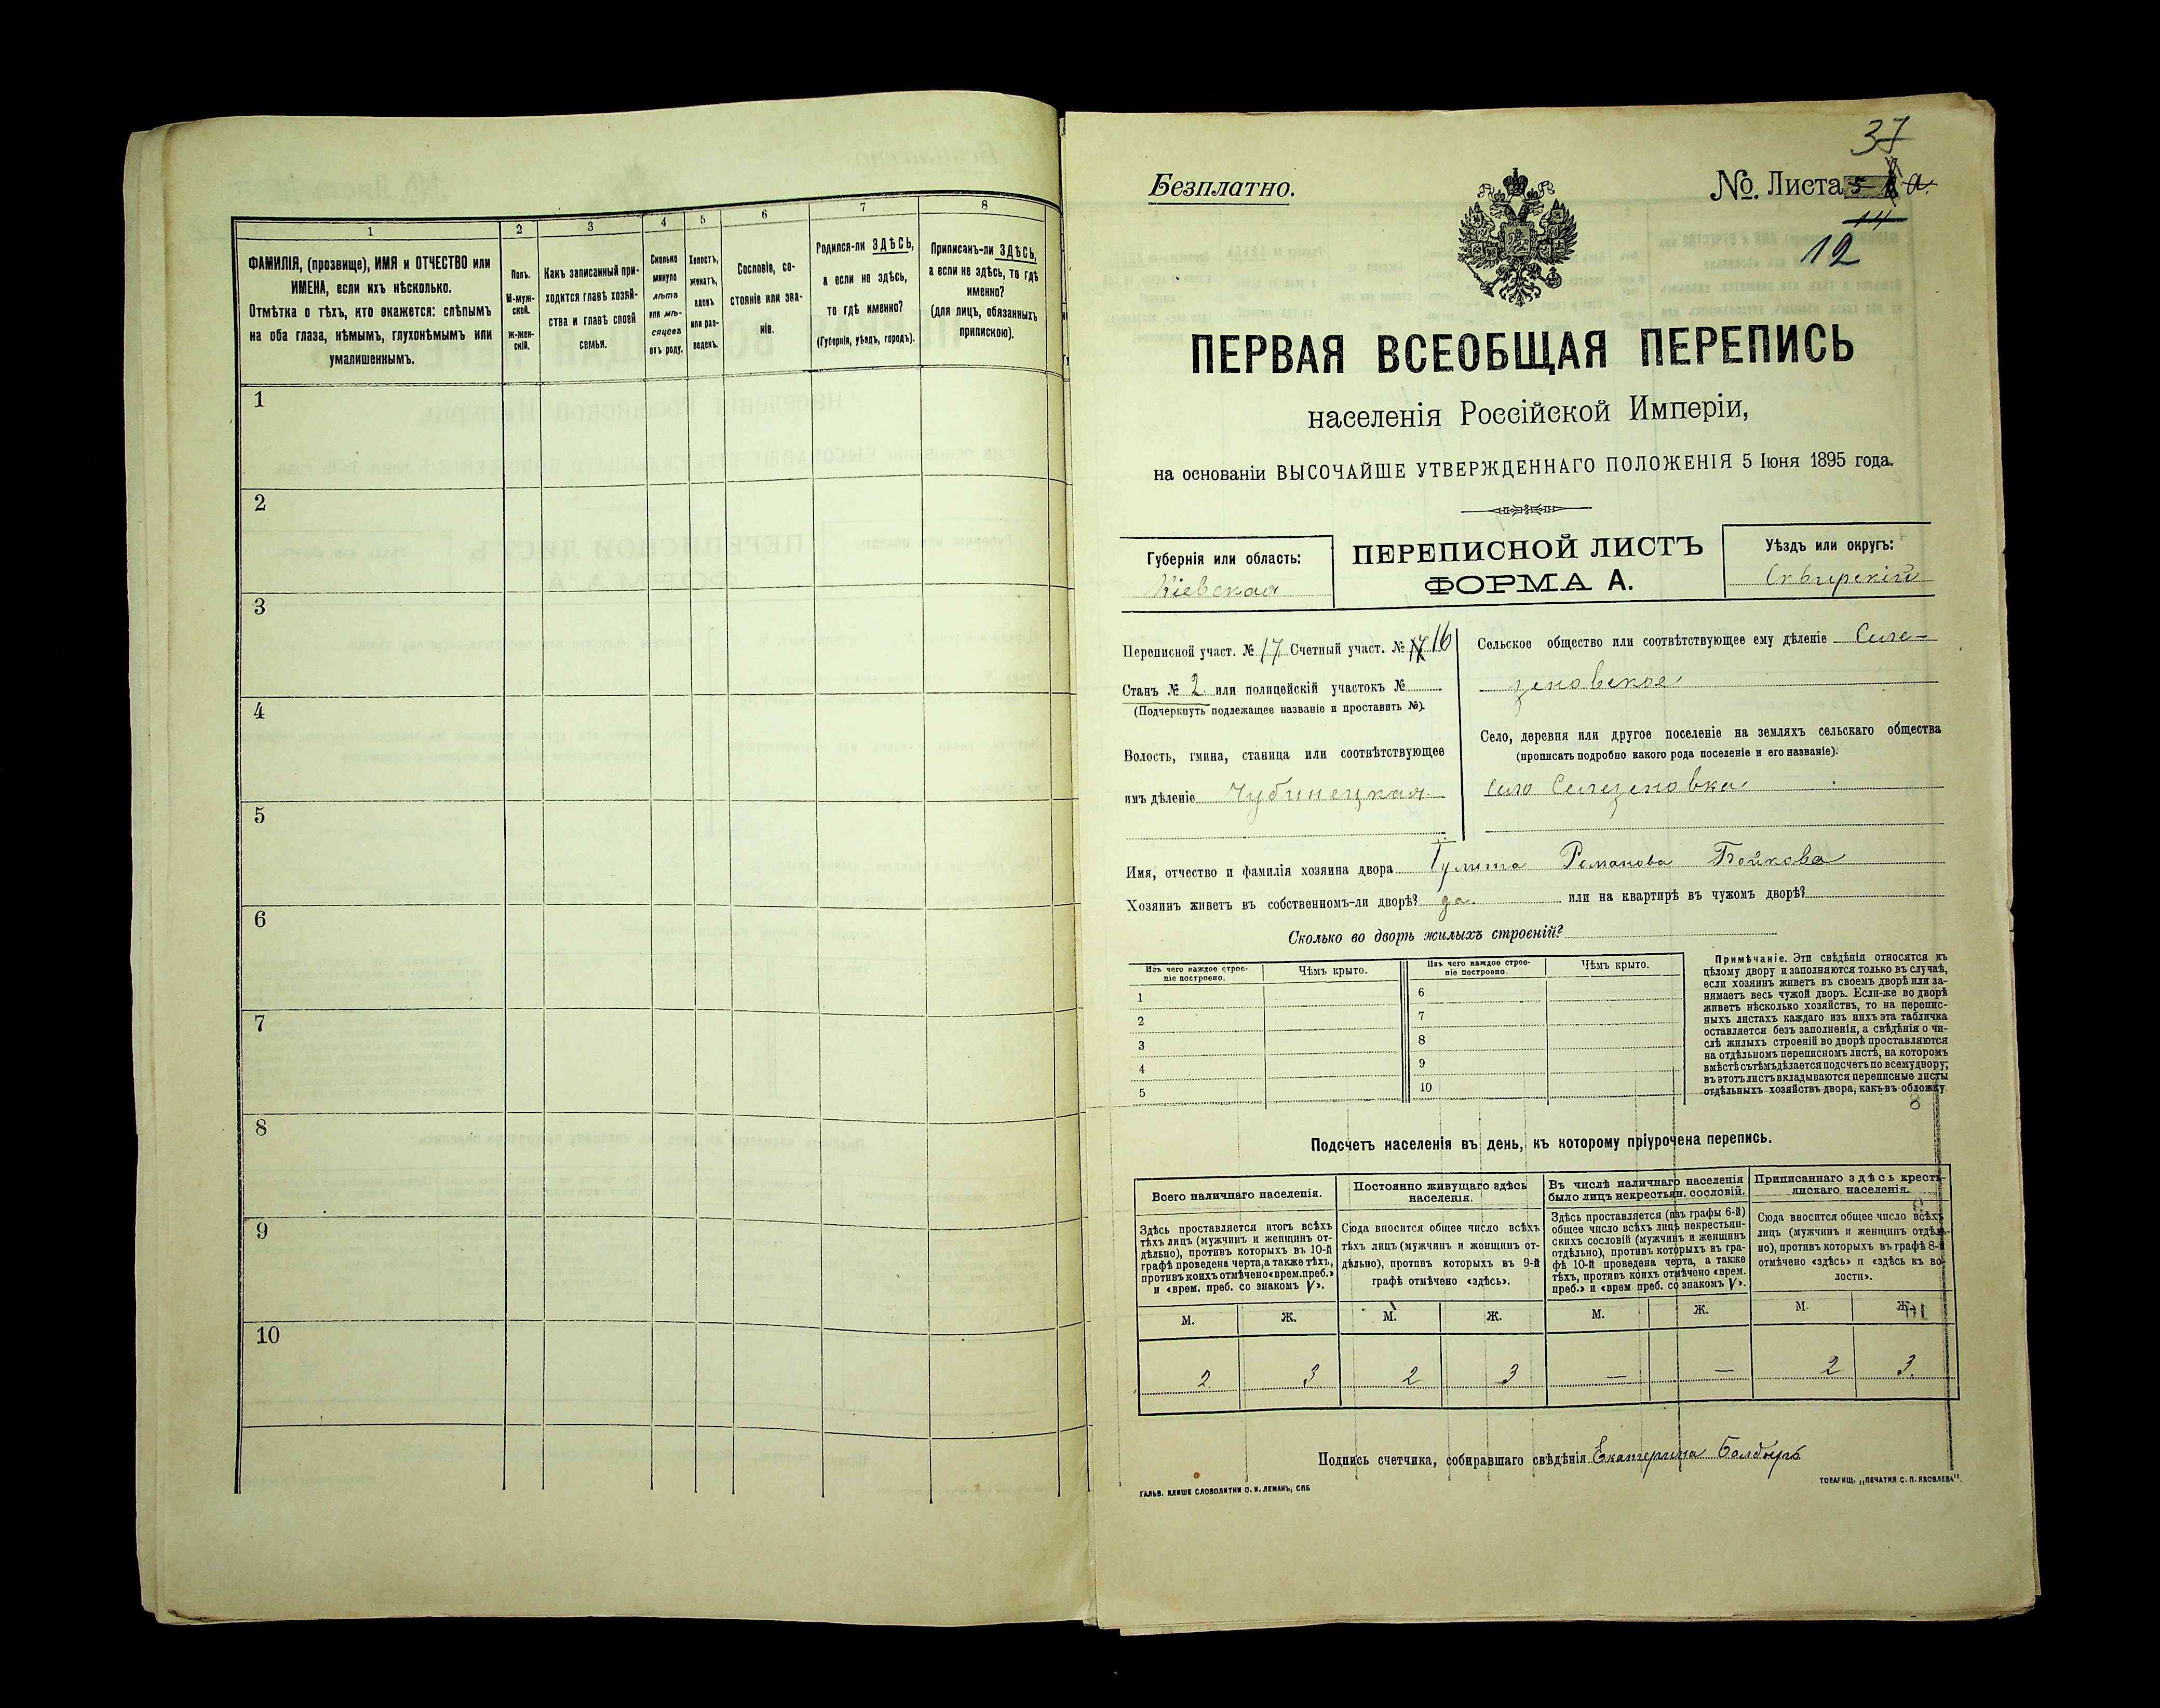 1
2
3
4
5
6
7
8
ФАМИЛІЯ, (прозвище), ИМЯ и ОТЧЕСТВО или
ИМЕНА, если ихъ нѣсколько.
Отмѣтка о тѣхъ, кто окажется: слѣпымъ
на оба глаза, нѣмымъ, глухонѣмымъ или
умалишеннымъ.
Полъ.
М-муж-
ской.
Ж-жен-
скій.
Какъ записанный при-
ходится главѣ хозяй-
ства и главѣ своей
семьи.
Сколько
минуло
лѣтъ
или мѣ-
сяцевъ
отъ роду.
Холостъ,
женатъ,
вдовъ
или раз-
веденъ.
Сословіе, со-
стояніе или зва-
ніе.
Родился-ли ЗДѢСЬ,
а если не здѣсь,
то гдѣ именно?
(Губернія, уѣздъ, городъ).
Приписанъ-ли ЗДѢСЬ,
а если не здѣсь, то гдѣ
именно?
(для лицъ, обязанныхъ
припискою).
1
2
3
4
5
6
7
8
9
10
37
Безплатно.
№. Листа 5 а.
14
12
ПЕРВАЯ ВСЕОБЩАЯ ПЕРЕПИСЬ
населенія Россійской Имперіи,
на основаніи ВЫСОЧАЙШЕ УТВЕРЖДЕННАГО ПОЛОЖЕНІЯ 5 Іюня 1895 года.
Губернія или область:
Кіевская
ПЕРЕПИСНОЙ ЛИСТЪ
ФОРМА А.
Уѣздъ или округъ:
Сквирскій
Переписной участ. № 17 Счетный участ. № 16
Станъ № 2 или полицейскій участокъ №
(Подчеркнуть подлежащее названіе и проставить №).
Волость, гмина, станица или соотвѣтствующее
имъ дѣленіе Чубинецкая
Сельское общество или соотвѣтствующее ему дѣленіе Селе-
зеновское
Село, деревня или другое поселеніе на земляхъ сельскаго общества
(прописать подробно какого рода поселеніе и его названіе).
село Селезеновка
Имя, отчество и фамилія хозяина двора Романова Бойкова
Хозяинъ живетъ въ собственномъ-ли дворѣ? да. или на квартирѣ въ чужомъ дворѣ?
Сколько во дворѣ жилыхъ строеній?
Изъ чего каждое строе-
ніе построено.
Чѣмъ крыто.
Изъ чего каждое строе-
ніе построено.
Чѣмъ крыто.
1
2
3
4
5
6
7
8
9
10
Примѣчаніе. Эти свѣдѣнія относятся къ
цѣлому двору и заполняются только въ случаѣ,
если хозяинъ живетъ въ своемъ дворѣ или за-
нимаетъ весь чужой дворъ. Если-же во дворѣ
живетъ нѣсколько хозяйствъ, то на перепис-
ныхъ листахъ каждаго изъ нихъ эта табличка
оставляется безъ заполненія, а свѣдѣнія о чи-
слѣ жилыхъ строеній во дворѣ проставляются
на отдѣльномъ переписномъ листѣ, на которомъ
вмѣстѣ съ тѣмъ дѣлается подсчетъ по всему двору;
въ этотъ листъ вкладываются переписные листы
отдѣльныхъ хозяйствъ двора, какъ въ обложку.
Подсчетъ населенія въ день, къ которому пріурочена перепись.
Всего наличнаго населенія.
Постоянно живущаго здѣсь
населенія.
Въ числѣ наличнаго населенія
было лицъ некрестьян. сословій.
Приписаннаго здѣсь кресть-
янскаго населенія.
Здѣсь проставляется итогъ всѣхъ
тѣхъ лицъ (мужчинъ и женщинъ от-
дѣльно), противъ которыхъ въ 10-й
графѣ проведена черта, а также тѣхъ,
противъ коихъ отмѣчено «врем. преб.»
и «врем. преб. со знакомъ V».
Сюда вносится общее число всѣхъ
тѣхъ лицъ (мужчинъ и женщинъ от-
дѣльно), противъ которыхъ въ 9-й
графѣ отмѣчено «здѣсь».
Здѣсь проставляется (изъ графы 6-й)
общее число всѣхъ лицъ некрестьян-
скихъ сословій (мужчинъ и женщинъ
отдѣльно), противъ которыхъ въ гра-
фѣ 10-й проведена черта, а также
тѣхъ, противъ коихъ отмѣчено «врем.
преб.» и «врем преб. со знакомъ V».
Сюда вносится общее число всѣхъ
лицъ (мужчинъ и женщинъ отдѣль-
но), противъ которыхъ въ графѣ 8-й
отмѣчено «здѣсь» и «здѣсь къ во-
лости».
М. Ж. М. Ж. М. Ж. М. Ж.
2 3 2 3 — — 2 3.
Подпись счетчика, собиравшаго свѣдѣнія Екатерина Болдыръ
ГАЛЬВ. КЛИШЕ СЛОВОЛИТНИ О. И. ЛЕМАНЪ, СПБ
ТОВАРИЩ. „ПЕЧАТНЯ С. П. ЯКОВЛЕВА".